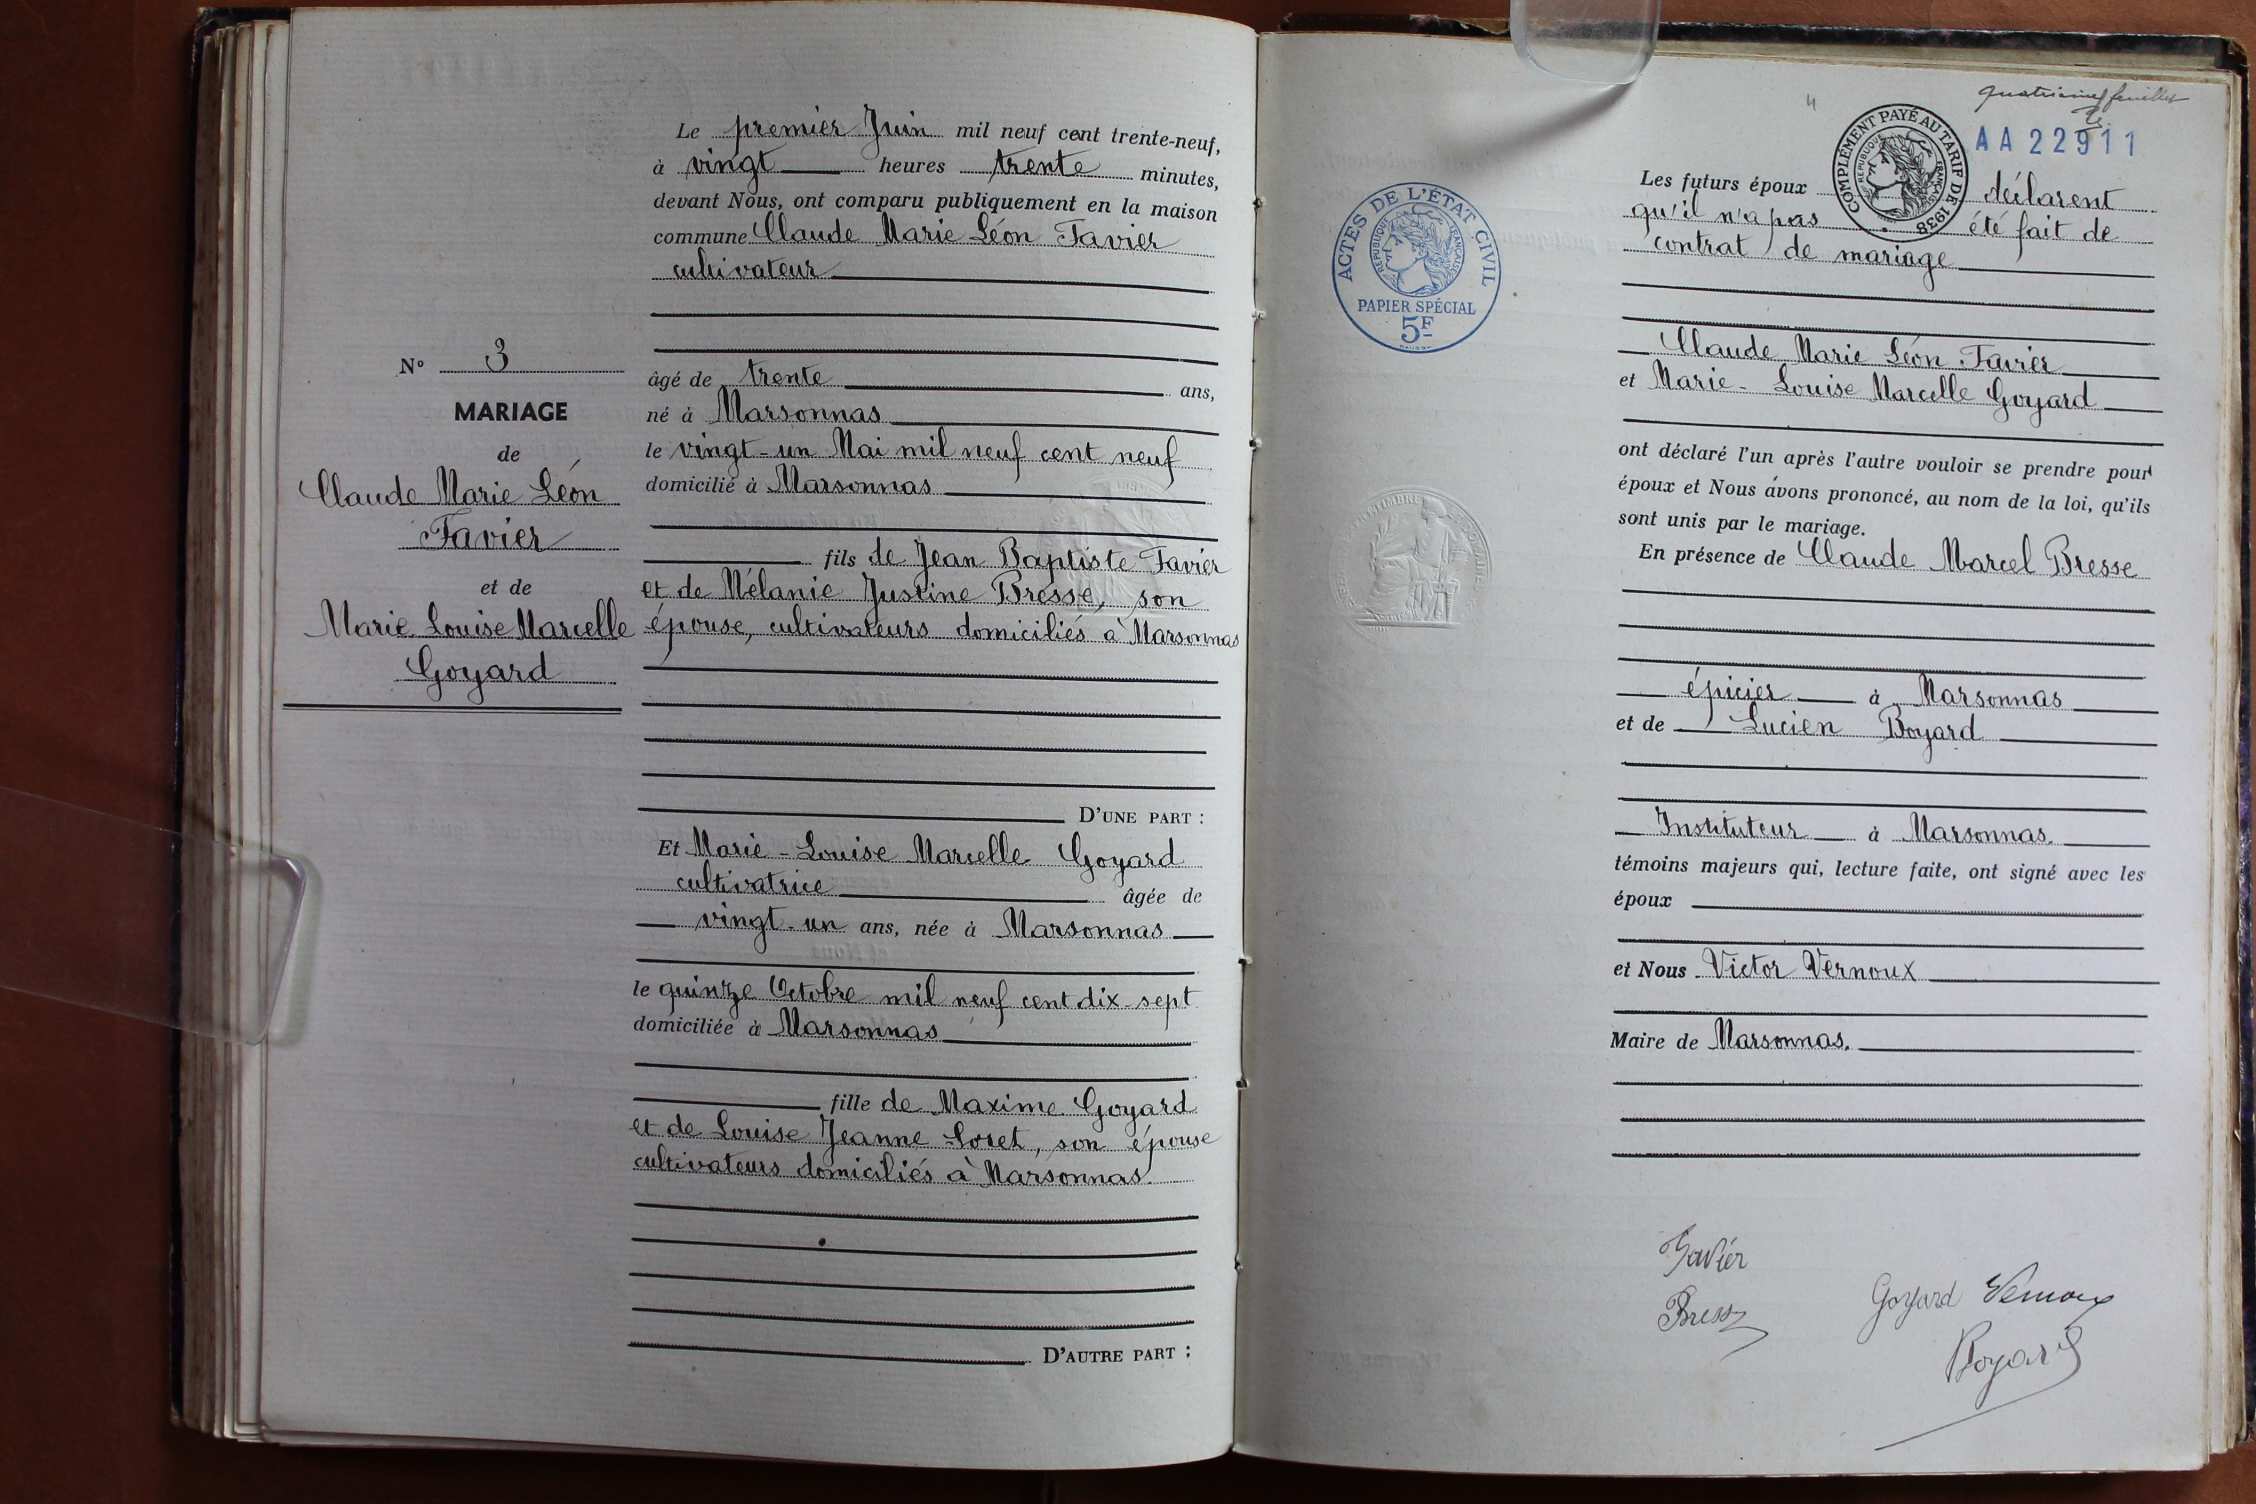 N° 3
MARIAGE
de
Claude Marie Léon
Favier
et de
Marie Louise Marcelle
Goyard
Le premier Juin mil neuf cent trente-neuf,
à vingt heures trente minutes,
devant Nous, ont comparu publiquement en la maison
commune Claude Marie Léon Favier
cultivateur
âgé de trente ans,
né à Marsonnas
le vingt-un Mai mil neuf cent neuf
domicilié à Marsonnas
fils de Jean Baptiste Favier
et de Mélanie Justine Bresse, son
épouse, cultivateurs domiciliés à Marsonnas
D'UNE PART :
Et Marie-Louise Marcelle Goyard
cultivatrice âgée de
vingt-un ans, née à Marsonnas
le quinze Octobre mil neuf cent dix-sept
domiciliée à Marsonnas
fille de Maxime Goyard
et de Louise Jeanne Loret, son épouse
cultivateurs domiciliés à Marsonnas.
D'AUTRE PART :
4
quatrième feuillet
AA 22911
COMPLÉMENT PAYÉ AU TARIF DE 1938
RÉPUBLIQUE FRANÇAISE
ACTES DE L'ÉTAT CIVIL
RÉPUBLIQUE FRANÇAISE
PAPIER SPÉCIAL
5F
Les futurs époux déclarent
qu'il n'a pas été fait de
contrat de mariage
Claude Marie Léon Favier
et Marie-Louise Marcelle Goyard
ont déclaré l'un après l'autre vouloir se prendre pour
époux et Nous avons prononcé, au nom de la loi, qu'ils
sont unis par le mariage.
En présence de Claude Marcel Bresse
épicier à Marsonnas
et de Lucien Boyard
Instituteur à Marsonnas.
témoins majeurs qui, lecture faite, ont signé avec les
époux
et Nous Victor Vernoux
Maire de Marsonnas.
Favier
Bresse
Goyard Vernoux
Boyard